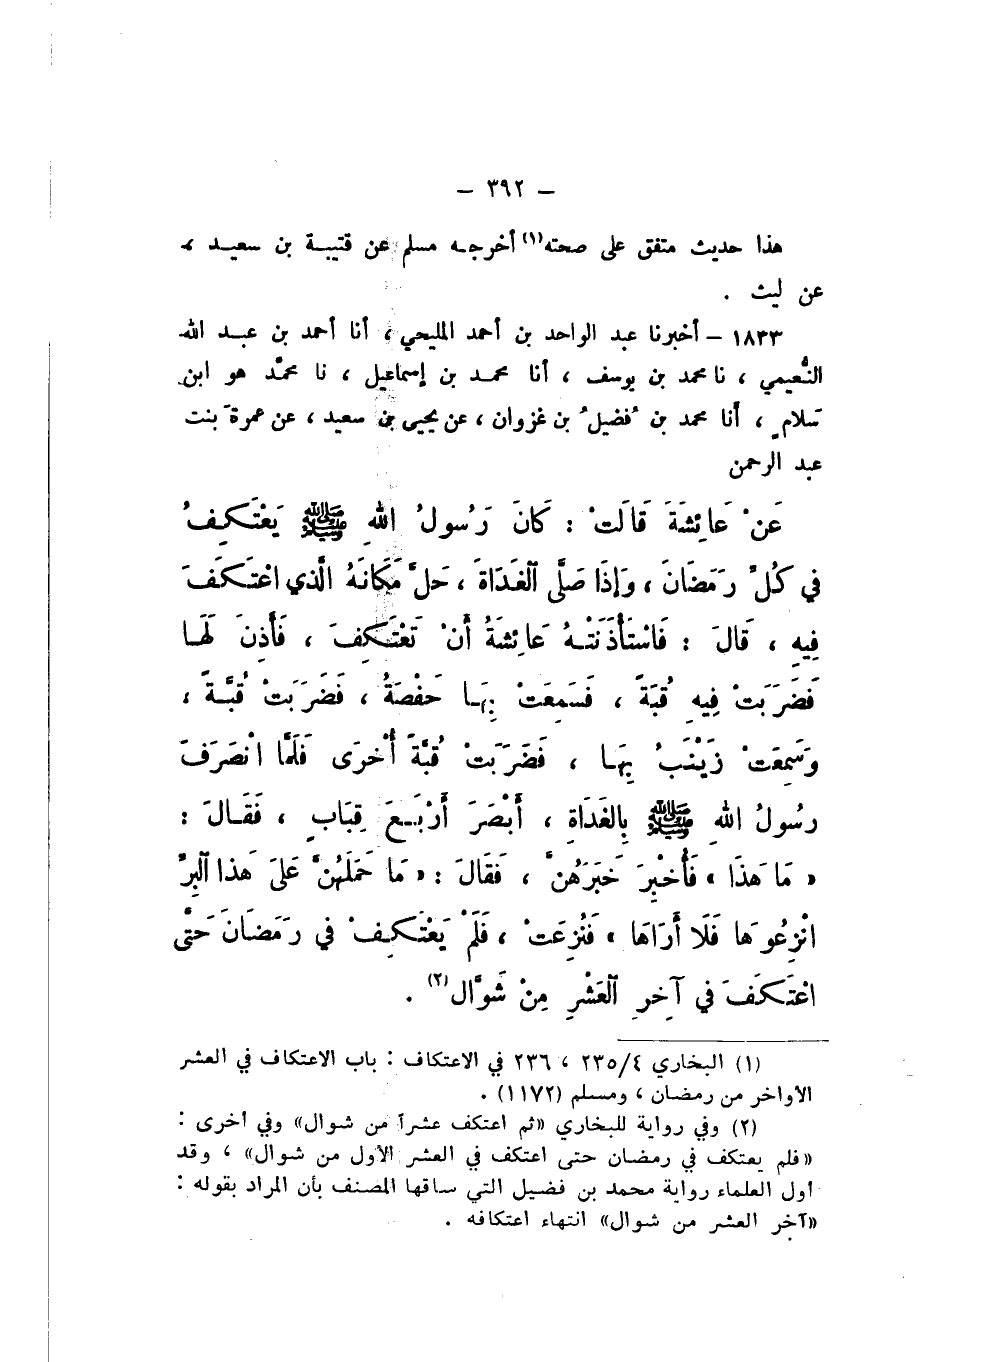 – ٣٩٢ –
هذا حديث متفق على صحته(١) أخرجه مسلم عن قتيبة بن سعيد ،
عن ليث .
١٨٣٣ – أخبرنا عبد الواحد بن أحمد المليحي ، أنا أحمد بن عبد الله
النُّعيمي ، نا محمد بن يوسف ، أنا محمد بن إسماعيل ، نا محمّد هو ابن
سَلامٍ ، أَنا محمد بن فُضيلُ بن غزوان ، عن يحيى بن سعيد ، عن عمرةَ بنت
عبد الرحمن
عَنْ عَائِشَةَ قَالَتْ : كَانَ رَسُولُ اللهِ ﷺ يَعْتَكِفُ
في كُلِّ رَمَضَانَ ، وَإِذَا صَلَّى الغَدَاةَ ، حَلَّ مَكَانَهُ الَّذي اعْتَكَفَ
فِيهِ ، قَالَ : فَاسْتَأْذَنَتْهُ عَائِشَةُ أَنْ تَعْتَكِفَ ، فَأَذِنَ لَهَا
فَضَرَبَتْ فِيهِ قُبَةً ، فَسَمِعَتْ بِهَا حَفْصَةُ ، فَضَرَبَتْ قُبَّةً ،
وَسَمِعَتْ زَيْنَبُ بِهَا ، فَضَرَبَتْ قُبَّةً أُخْرَى فَلَمَّا انْصَرَفَ
رسُولُ اللهِ ﷺ بِالغَدَاةِ ، أَبْصَرَ أَرْبَعَ قِبَابٍ ، فَقَالَ :
« مَا هَذَا » فَأُخْبِرَ خَبَرَهُنَّ ، فَقَالَ : « مَا حَمَلَهُنَّ عَلَى هَذا البِرُّ
انْزِعُوهَا فَلَا أَرَاهَا » فَنُزِعَتْ ، فَلَمْ يَعْتَكِفْ في رَمَضَانَ حَتَّى
اعْتَكَفَ في آخِرِ العَشْرِ مِنْ شَوَّال(٢) .
(١) البخاري ٢٣٥/٤ ، ٢٣٦ في الاعتكاف : باب الاعتكاف في العشر
الأواخر من رمضان ، ومسلم (١١٧٢) .
(٢) وفي رواية للبخاري «ثم اعتكف عشراً من شوال» وفي أخرى :
«فلم يعتكف في رمضان حتى اعتكف في العشر الأول من شوال» ، وقد
أول العلماء رواية محمد بن فضيل التي ساقها المصنف بأن المراد بقوله :
«آخر العشر من شوال» انتهاء اعتكافه .